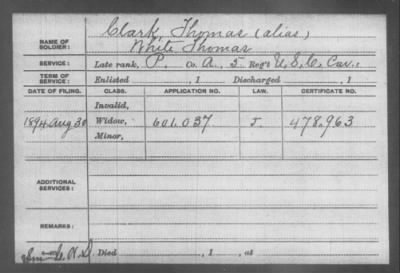 NAME OF SOLDIER: Clark, Thomas (alias)
White Thomas
SERVICE: Late rank, P. Co. A., 5 Reg't U.S.C. Cav.
TERM OF SERVICE: Enlisted , 1 Discharged , 1
DATE OF FILING. CLASS. APPLICATION NO. LAW. CERTIFICATE NO.
Invalid,
1894 Aug 30 Widow, 601.037 J. 478.963
Minor,
ADDITIONAL SERVICES:
REMARKS:
Died , 1 , at